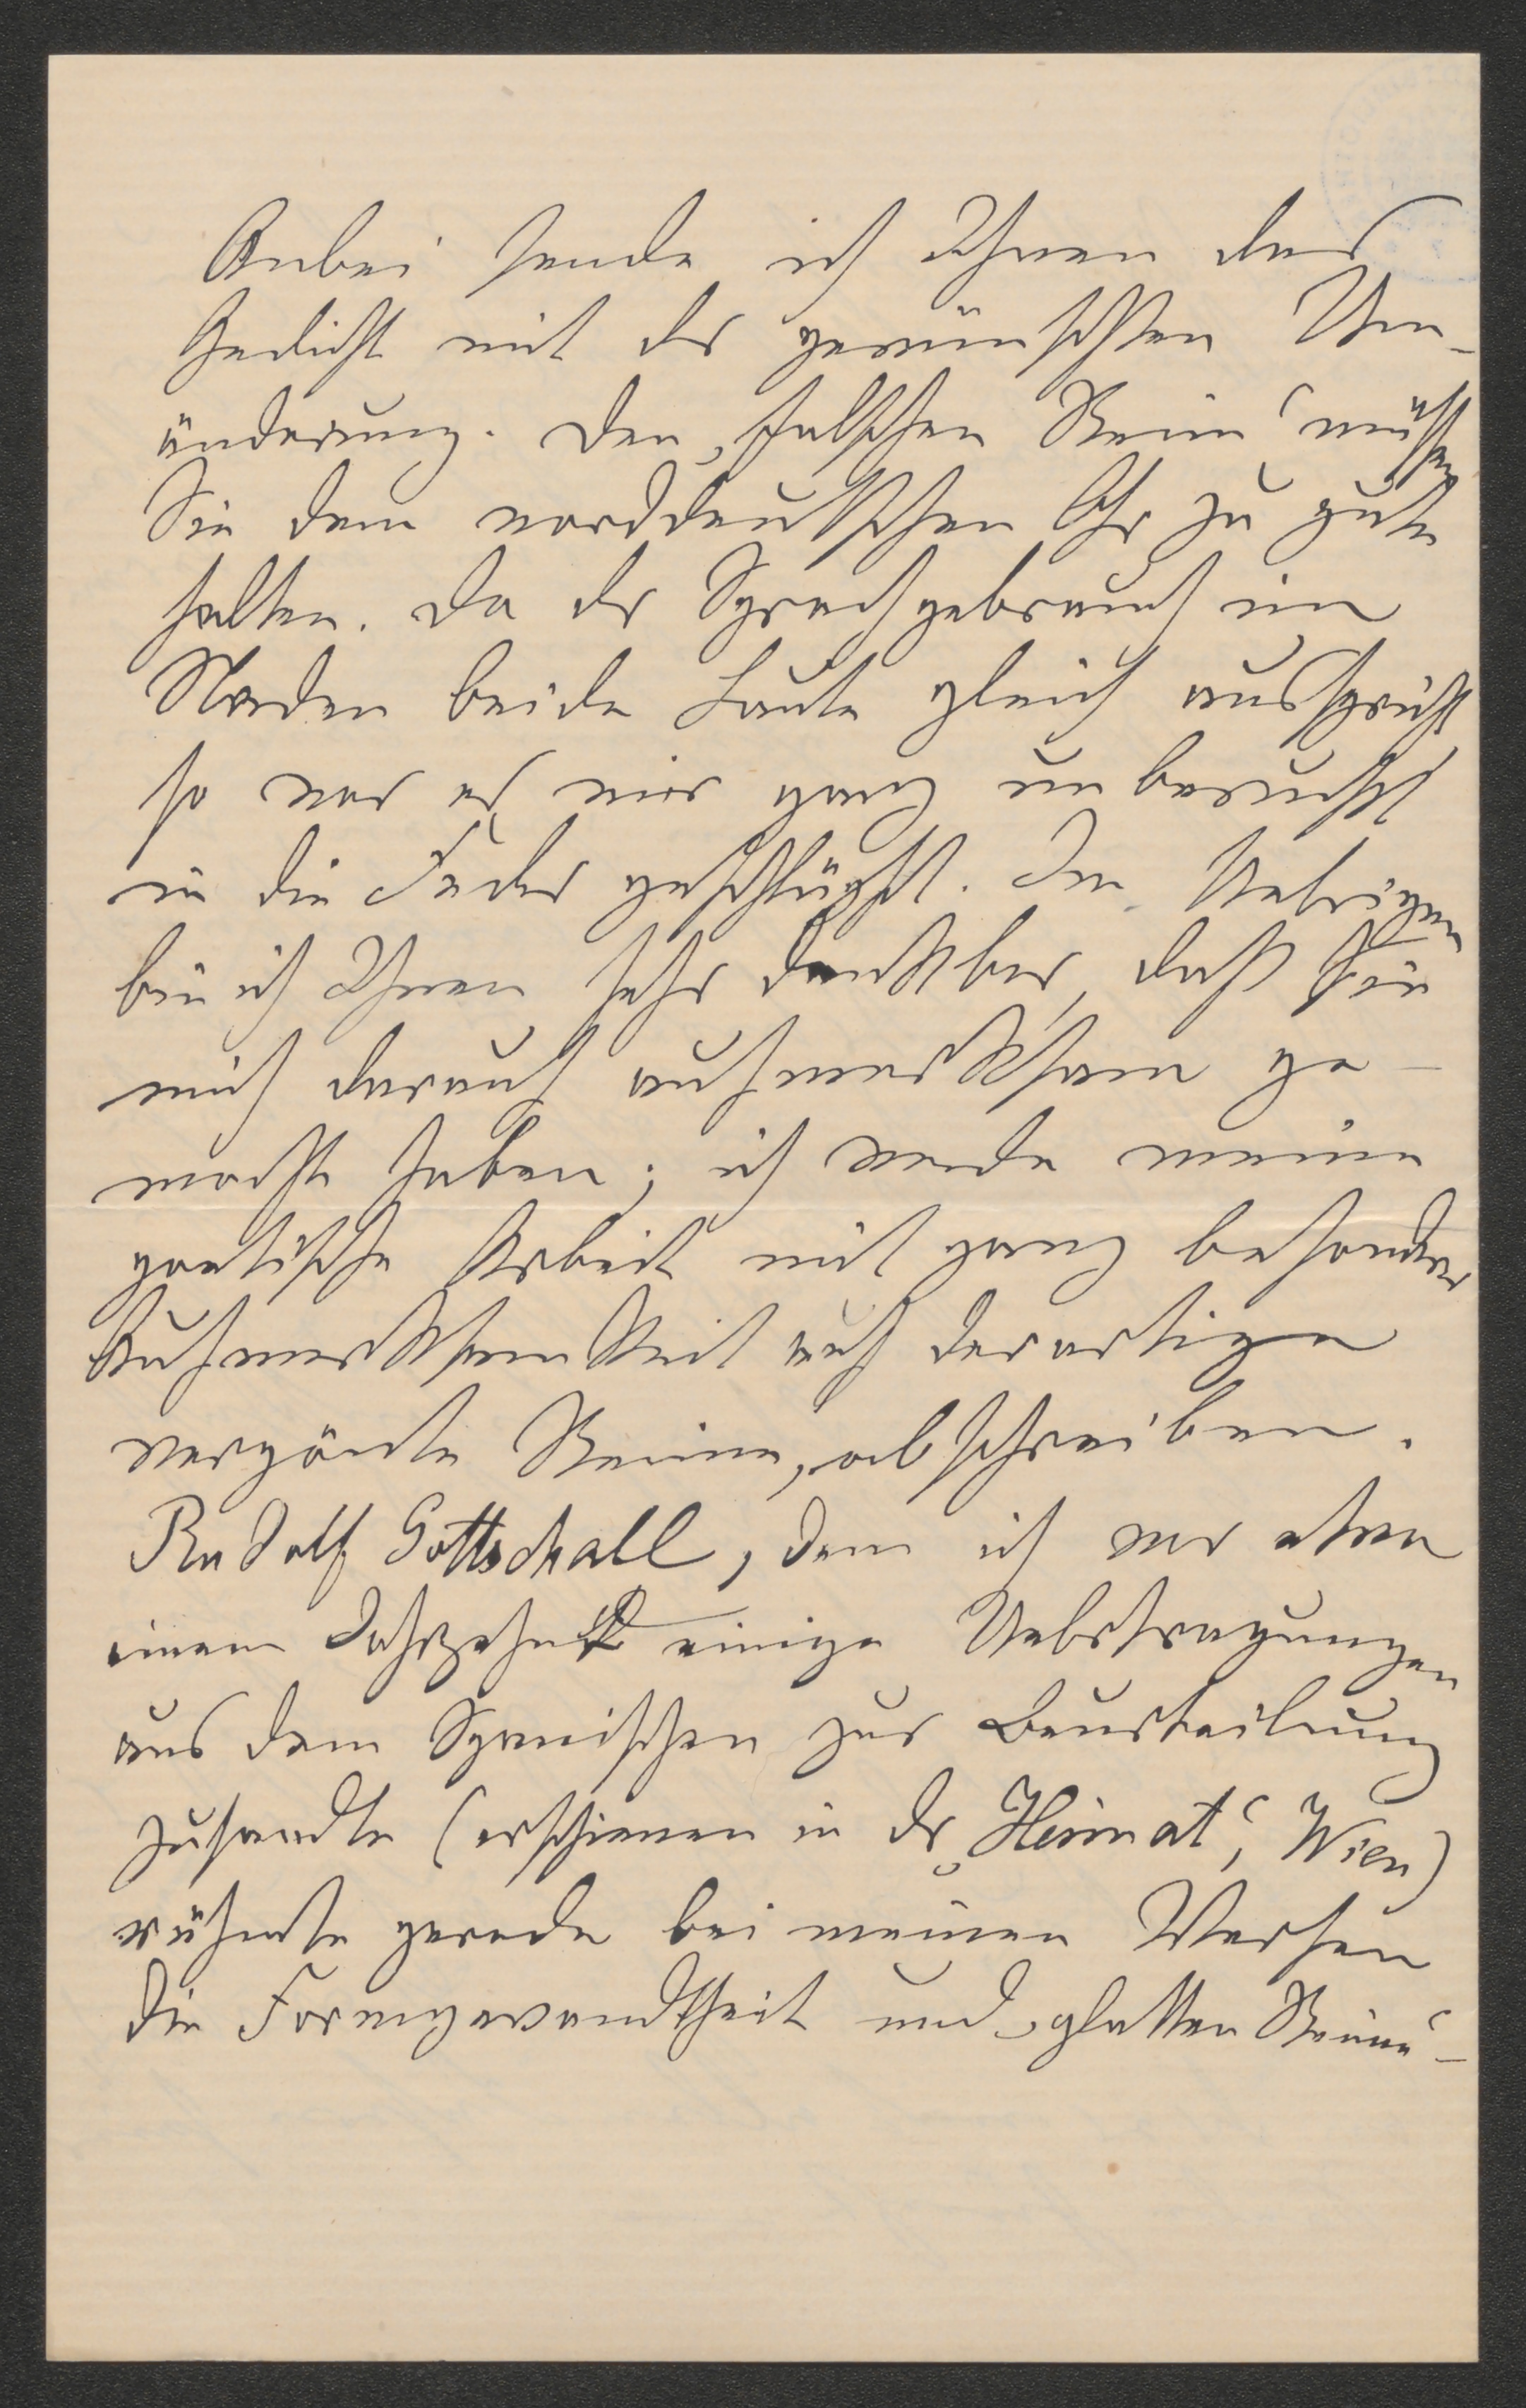 Anbei sende ich Ihnen das
Gedicht mit der gewünschten Um-
änderung. Den „falschen Reim“ müssen
Sie dem norddeutschen Ohr zu gute
halten. Da der Sprachgebrauch im
Norden beide Laute gleich ausspricht,
so war es mir ganz unbewußt
in die Feder geschlüpft. Im Uebrigen
bin ich Ihnen sehr dankbar, daß Sie
mich darauf aufmerksam ge-
macht haben; ich werde meine
poetische Arbeit mit ganz besondrer
Aufmerksamkeit auf derartige
verpönte Reime, abschreiben.
Rudolf Gottschall, dem ich vor etwa
einem Jahrzehnt einige Uebertragungen
aus dem Spanischen zur Beurteilung
zusandte (erschienen in der „Heimat“, Wien)
rühmte gerade bei meinen Versen
die Formgewandtheit und „glatten Reime“ –